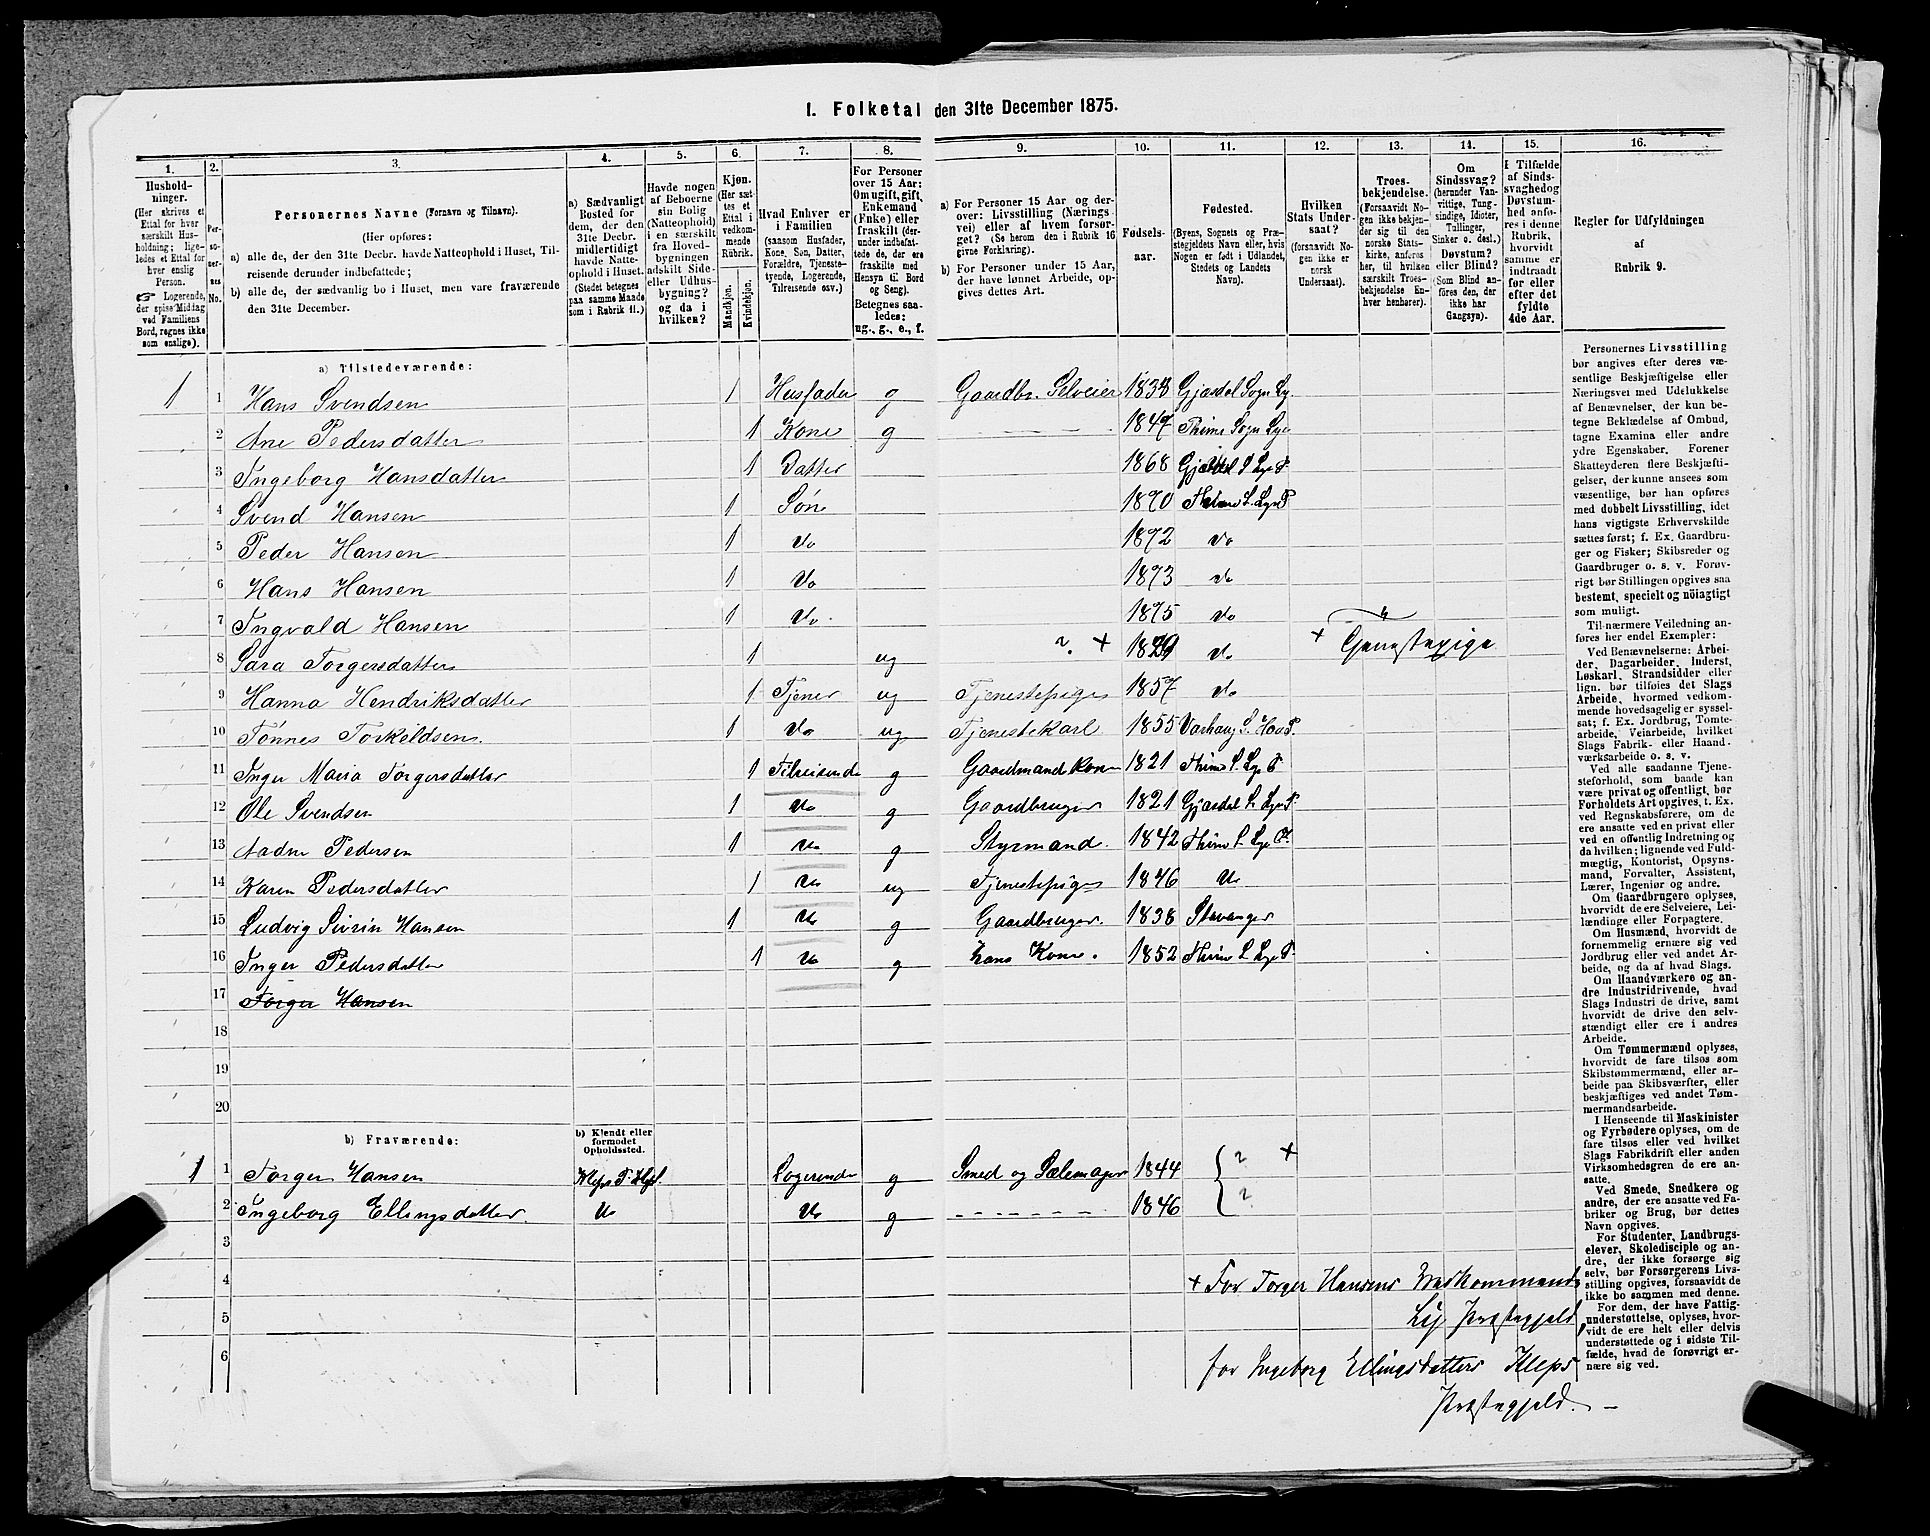 I. Folketal den 31te December 1875.
1. 2. 3. 4. 5. 6. 7. 8. 9. 10. 11. 12. 13. 14. 15. 16.
Hushold-
ninger.
(Her skrives et
Ettal for hver
særskilt Hus-
holdning; lige-
ledes et Ettal for
hver enslig
Person.
☞ Logerende,
der spise Middag
ved Familiens
Bord, regnes ikke
som enslige).
Per-
so-
ner-
nes
No.
Personernes Navne (Fornavn og Tilnavn).
(Her opføres:
a) alle de, der den 31te Decbr. havde Natteophold i Huset, Til-
reisende derunder indbefattede;
b) alle de, der sædvanlig bo i Huset, men vare fraværende
den 31te December.
a) Sædvanligt
Bosted for
dem, der den
31te Decbr.
midlertidigt
havde Natte-
ophold i Huset.
(Stedet betegnes
paa samme Maade
som i Rubrik 11.)
Havde nogen
af Beboerne
sin Bolig
(Natteophold)
i en særskilt
fra Hoved-
bygningen
adskilt Side-
eller Udhus-
bygning?
og da i
hvilken?
Kjøn.
(Her sæt-
tes et
Ettal i
vedkom-
mende
Rubrik.
Mandkjøn.
Kvindekjøn.
Hvad Enhver er
i Familien
(saasom Husfader,
Kone, Søn, Datter,
Forældre, Tjeneste-
tyende, Logerende,
Tilreisende osv.)
For Personer
over 15 Aar:
Om ugift, gift,
Enkemand
(Enke) eller
fraskilt (der-
under indbefat-
tede de, der ere
fraskilte med
Hensyn til Bord
og Seng).
Betegnes saa-
ledes:
ug., g., e., f.
a) For Personer 15 Aar og der-
over: Livsstilling (Nærings-
vei) eller af hvem forsør-
get? (Se herom den i Rubrik 16
givne Forklaring).
b) For Personer under 15 Aar,
der have lønnet Arbeide, op-
gives dettes Art.
Fødsels-
aar.
Fødested.
(Byens, Sognets og Præ-
stegjeldets Navn eller, hvis
Nogen er født i Udlandet,
Stedets og Landets
Navn).
Hvilken
Stats Under-
saat?
(forsaavidt No-
gen ikke er
norsk
Undersaat).
Troes-
bekjendelse.
(Forsaavidt No-
gen ikke bekjen-
der sig til den
norske Stats-
kirke, anføres
her, til hvilken
særskilt Troes-
bekjendelse En-
hver henhører).
Om
Sindssvag?
(herunder Van-
vittige, Tung-
sindige, Idioter,
Tullinger,
Sinker o. desl.)
Døvstum?
eller Blind?
(Som Blind an-
føres den, der
ikke har
Gangsyn).
I Tilfælde
af Sinds-
svaghed og
Døvstum-
hed anfø-
res i denne
Rubrik,
hvorvidt
samme er
indtraadt
før eller
efter det
fyldte
4de Aar.
Regler for Udfyldningen
af
Rubrik 9.
a) Tilstedeværende:
1 1 Hans Svendsen 1 Husfader g Gaardbr. Selveier 1838 Gjæsdal Sogn Ly.
2 Ane Pedersdatter 1 Kone g 1847 Thime Sogn Lye
3 Ingeborg Hansdatter 1 Datter 1868 Gjæsdal S Lye P
4 Svend Hansen 1 Søn 1870 Thime S. Lye P.
5 Peder Hansen 1 do 1872 do
6 Hans Hansen 1 do 1873 do
7 Ingvald Hansen 1 do. 1875 do
8 Sara Torgersdatter 1 ug ?. + do +
9 Hanna Hendriksdatter 1 Tjener ug Tjenestepige 1857 do
10 Tønnes Torkeldsen. 1 do ug Tjenestekarl 1855 Varhaug S. Haa P.
11 Inger Maria Torgersdatter 1 Tilreisende g Gaardmandkone 1821 Thime S. Lye P
12 Ole Svendsen 1 do g Gaardbruger 1821 Gjæsdal S. Lye P.
13 Aadne Pedersen 1 do g Styrmand. 1842 Thime S Lye P.
14 Karen Pedersdatter 1 do ug Tjenestepige 1846 do
15 Ludvig Sivrin Hansen 1 do g Gaardbruger. 1838 Stavanger
16 Inger Pedersdatter 1 do g hans Kone. 1852 Thime S Lye P.
17 Torger Hansen
18
19
20
b) Fraværende:
b) Kjendt eller
formodet
Opholdssted.
1 1 Torger Hansen Kleps P. Logerende g Smed og Sælemager 1844 ? +
2 Ingeborg Ellingsdatter. do do g 1846 ?
3
4
5
6
+ For Torger Hansens Vedkommende
Lye Præstegjeld,
for Ingeborg Ellingsdatters Kleps
Præstegjeld. –
Personernes Livsstilling
bør angives efter deres væ-
sentlige Beskjæftigelse eller
Næringsvei med Udelukkelse
af Benævnelser, der kun be-
tegne Beklædelse af Ombud,
tagne Examina eller andre
ydre Egenskaber. Forener
Skatteyderen flere Beskjæfti-
gelser, der kunne ansees som
væsentlige, bør han opføres
med dobbelt Livsstilling, idet
hans vigtigste Erhvervskilde
sættes først; f. Ex. Gaardbru-
ger og Fisker; Skibsreder og
Gaardbruger o. s. v. Forøv-
rigt bør Stillingen opgives saa
bestemt, specielt og nöiagtigt
som muligt.
Til nærmere Veiledning an-
føres her endel Exempler:
Ved Benævnelserne: Arbei-
der, Dagarbeider, Inderst,
Løskarl, Strandsidder eller
lign. bør tilføies det Slags
Arbeide, hvormed vedkom-
mende hovedsagelig er syssel-
sat; f. Ex. Jordbrug, Tomte-
arbeide, Veiarbeide, hvilket
Slags Fabrik- eller Haand-
værksarbeide o. s. v.
Ved alle saadanne Tjene-
steforhold, som baade kan
være privat og offentligt, bør
Forholdets Art opgives, t. Ex.
ved Regnskabsførere, om de
ere ansatte ved en privat eller
ved en offentlig Indretning og
da hvilken; lignende ved Fuld-
mægtig, Kontorist, Opsyns-
mand, Forvalter, Assistent,
Lærer, Ingeniør og andre.
Om Gaardbrugere oplyses,
hvorvidt de ere Selveiere, Lei-
lændinge eller Forpagtere.
Om Husmænd, hvorvidt de
fornemmelig ernære sig ved
Jordbrug eller ved andet Ar-
beide, og da af hvad Slags.
Om Haandværkere og an-
dre Industridrivende, hvad
Slags Industri de drive, samt
hvorvidt de drive den selv-
stændigt eller ere i andres
Arbeide.
Om Tømmermænd oplyses,
hvorvidt de fare tilsøs som
Skibstømmermænd, eller ar-
beide paa Skibsværfter, eller
beskjæftiges ved andet Tøm-
mermandsarbeide.
I Henseende til Maskinister
og Fyrbødere oplyses, om de
fare tilsøs eller ved hvilket
Slags Fabrikdrift eller anden
Virksomhedsgren de ere an-
satte.
Ved Smede, Snedkere og
andre, der ere ansatte ved Fa-
briker og Brug, bør dettes
Navn opgives.
For Studenter, Landbrugs-
elever, Skoledisciple og an-
dre, der ikke forsørge sig
selv, bør Forsørgerens Livs-
stilling opgives, forsaavidt de
ikke bo sammen med denne.
For dem, der have Fattig-
understøttelse, oplyses, hvor-
vidt de ere helt eller delvis
understøttede og i sidste Til-
fælde, hvad de forøvrigt er-
nære sig ved.